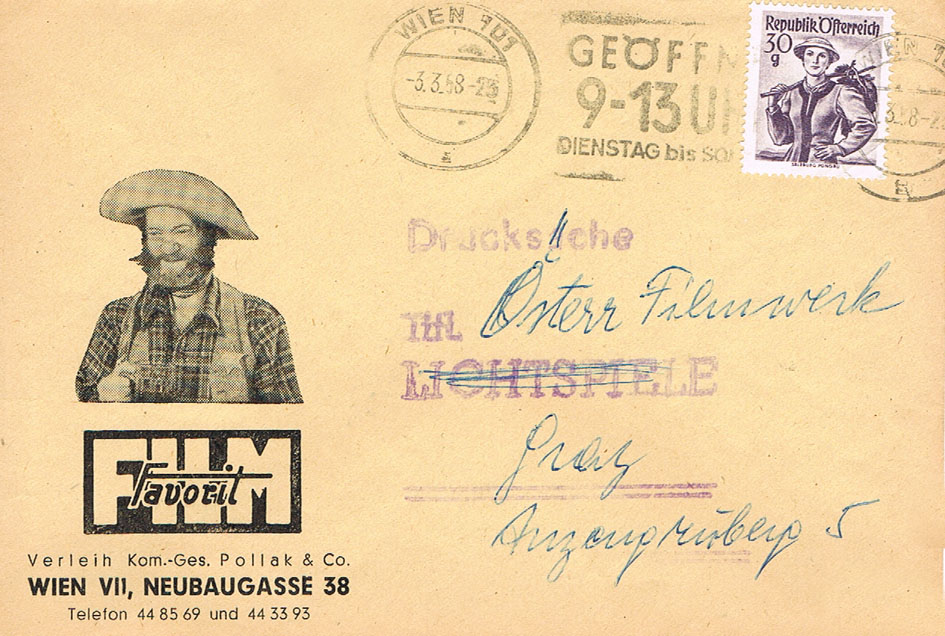 WIEN 101
-3.3.58-23
a
GEÖFFN
9-13 UH
DIENSTAG bis SO
Republik Österreich
30
g
WIEN 10
Drucksache
Österr Filmwerk
Titl.
LICHTSPIELE
Graz
Anzengruberg 5
FILM
Favorit
Verleih Kom.-Ges. Pollak & Co.
WIEN VII, NEUBAUGASSE 38
Telefon 44 85 69 und 44 33 93